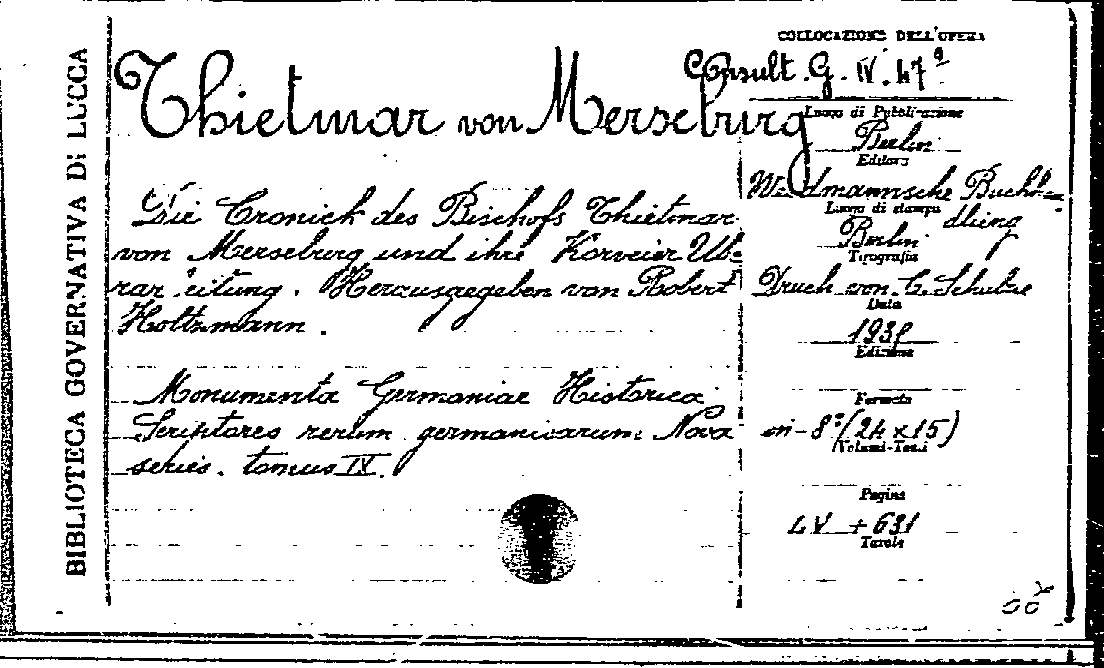 BIBLIOTECA GOVERNATIVA DI LUCCA
COLLOCAZIONE DELL'OPERA
Consult. G. IV. 47ª
Thietmar von Merseburg
Luogo di Pubblicazione
Berlin
Editore
Weidmannsche Buchha=
dlung
Luogo di stampa
Berlin
Tipografia
Druck von C. Schulze
Data
Edizione
Formato
in-8º (24 x 15)
Volumi-Tomi
Pagine
LV + 631
Tavole
Die Cronick des Bischofs Thietmar
von Merseburg und ihre Korveier Ub=
Herausgegeben von Robert
Holtzmann.
Monumenta Germaniae Historica
Scriptores rerum germanicarum. Nova
series. tomus IX.